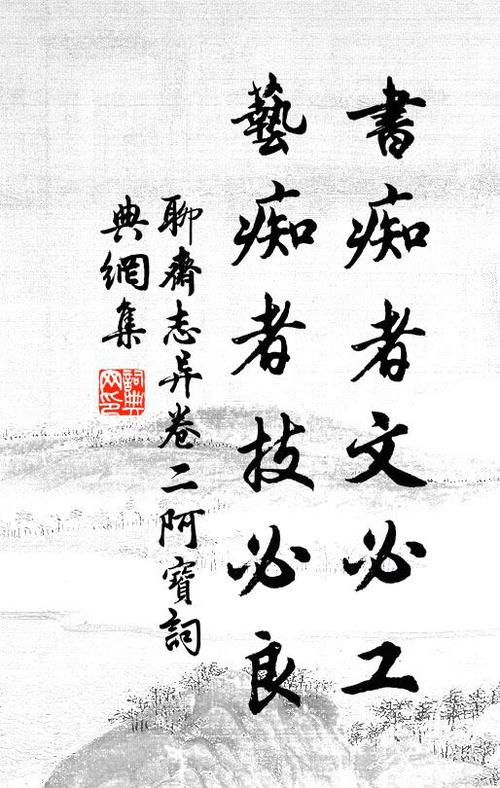 書痴者文必工
藝痴者技必良
聊齋志异卷二阿寶詞
典網集
詞典
网印